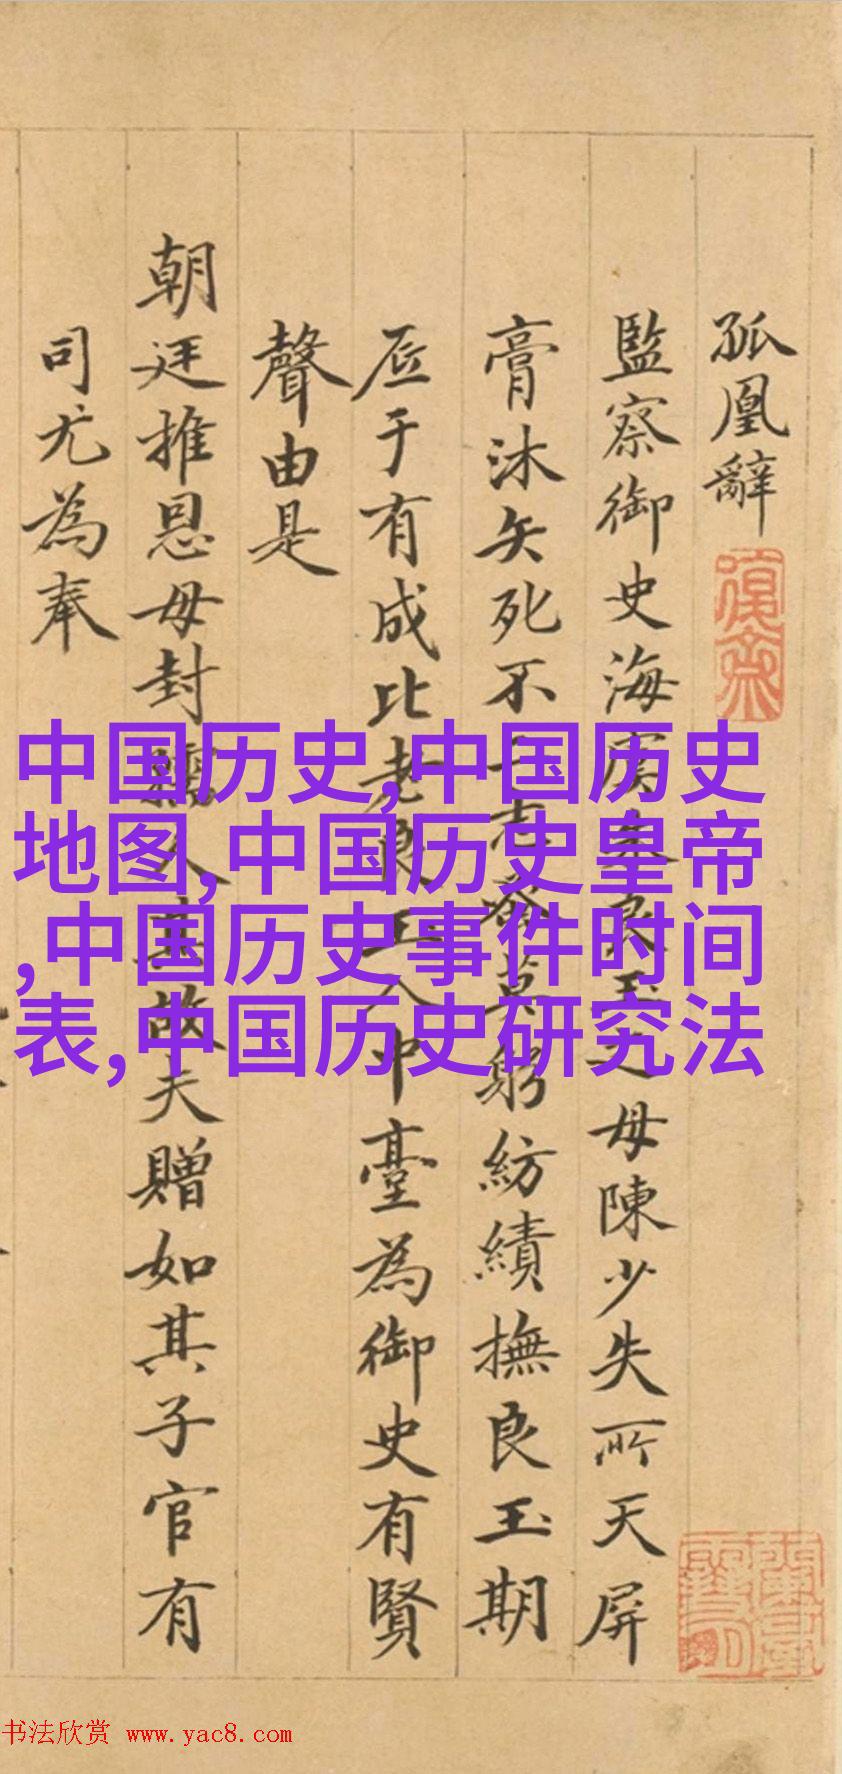 孤凰辭
監察御史海虞朱良玉之母陳少失所天屏
膏沐矢死不志莫躬紡績撫良玉期
于有成比良玉入中臺為御史有賢
聲由是
朝廷推恩母封孺人其故夫贈如其子官有
司尤為奉
復齋
中国历史,中国历史
地图,中国历史皇帝
,中国历史事件时间
表,中国历史研究法
书法欣赏 www.yac8.com